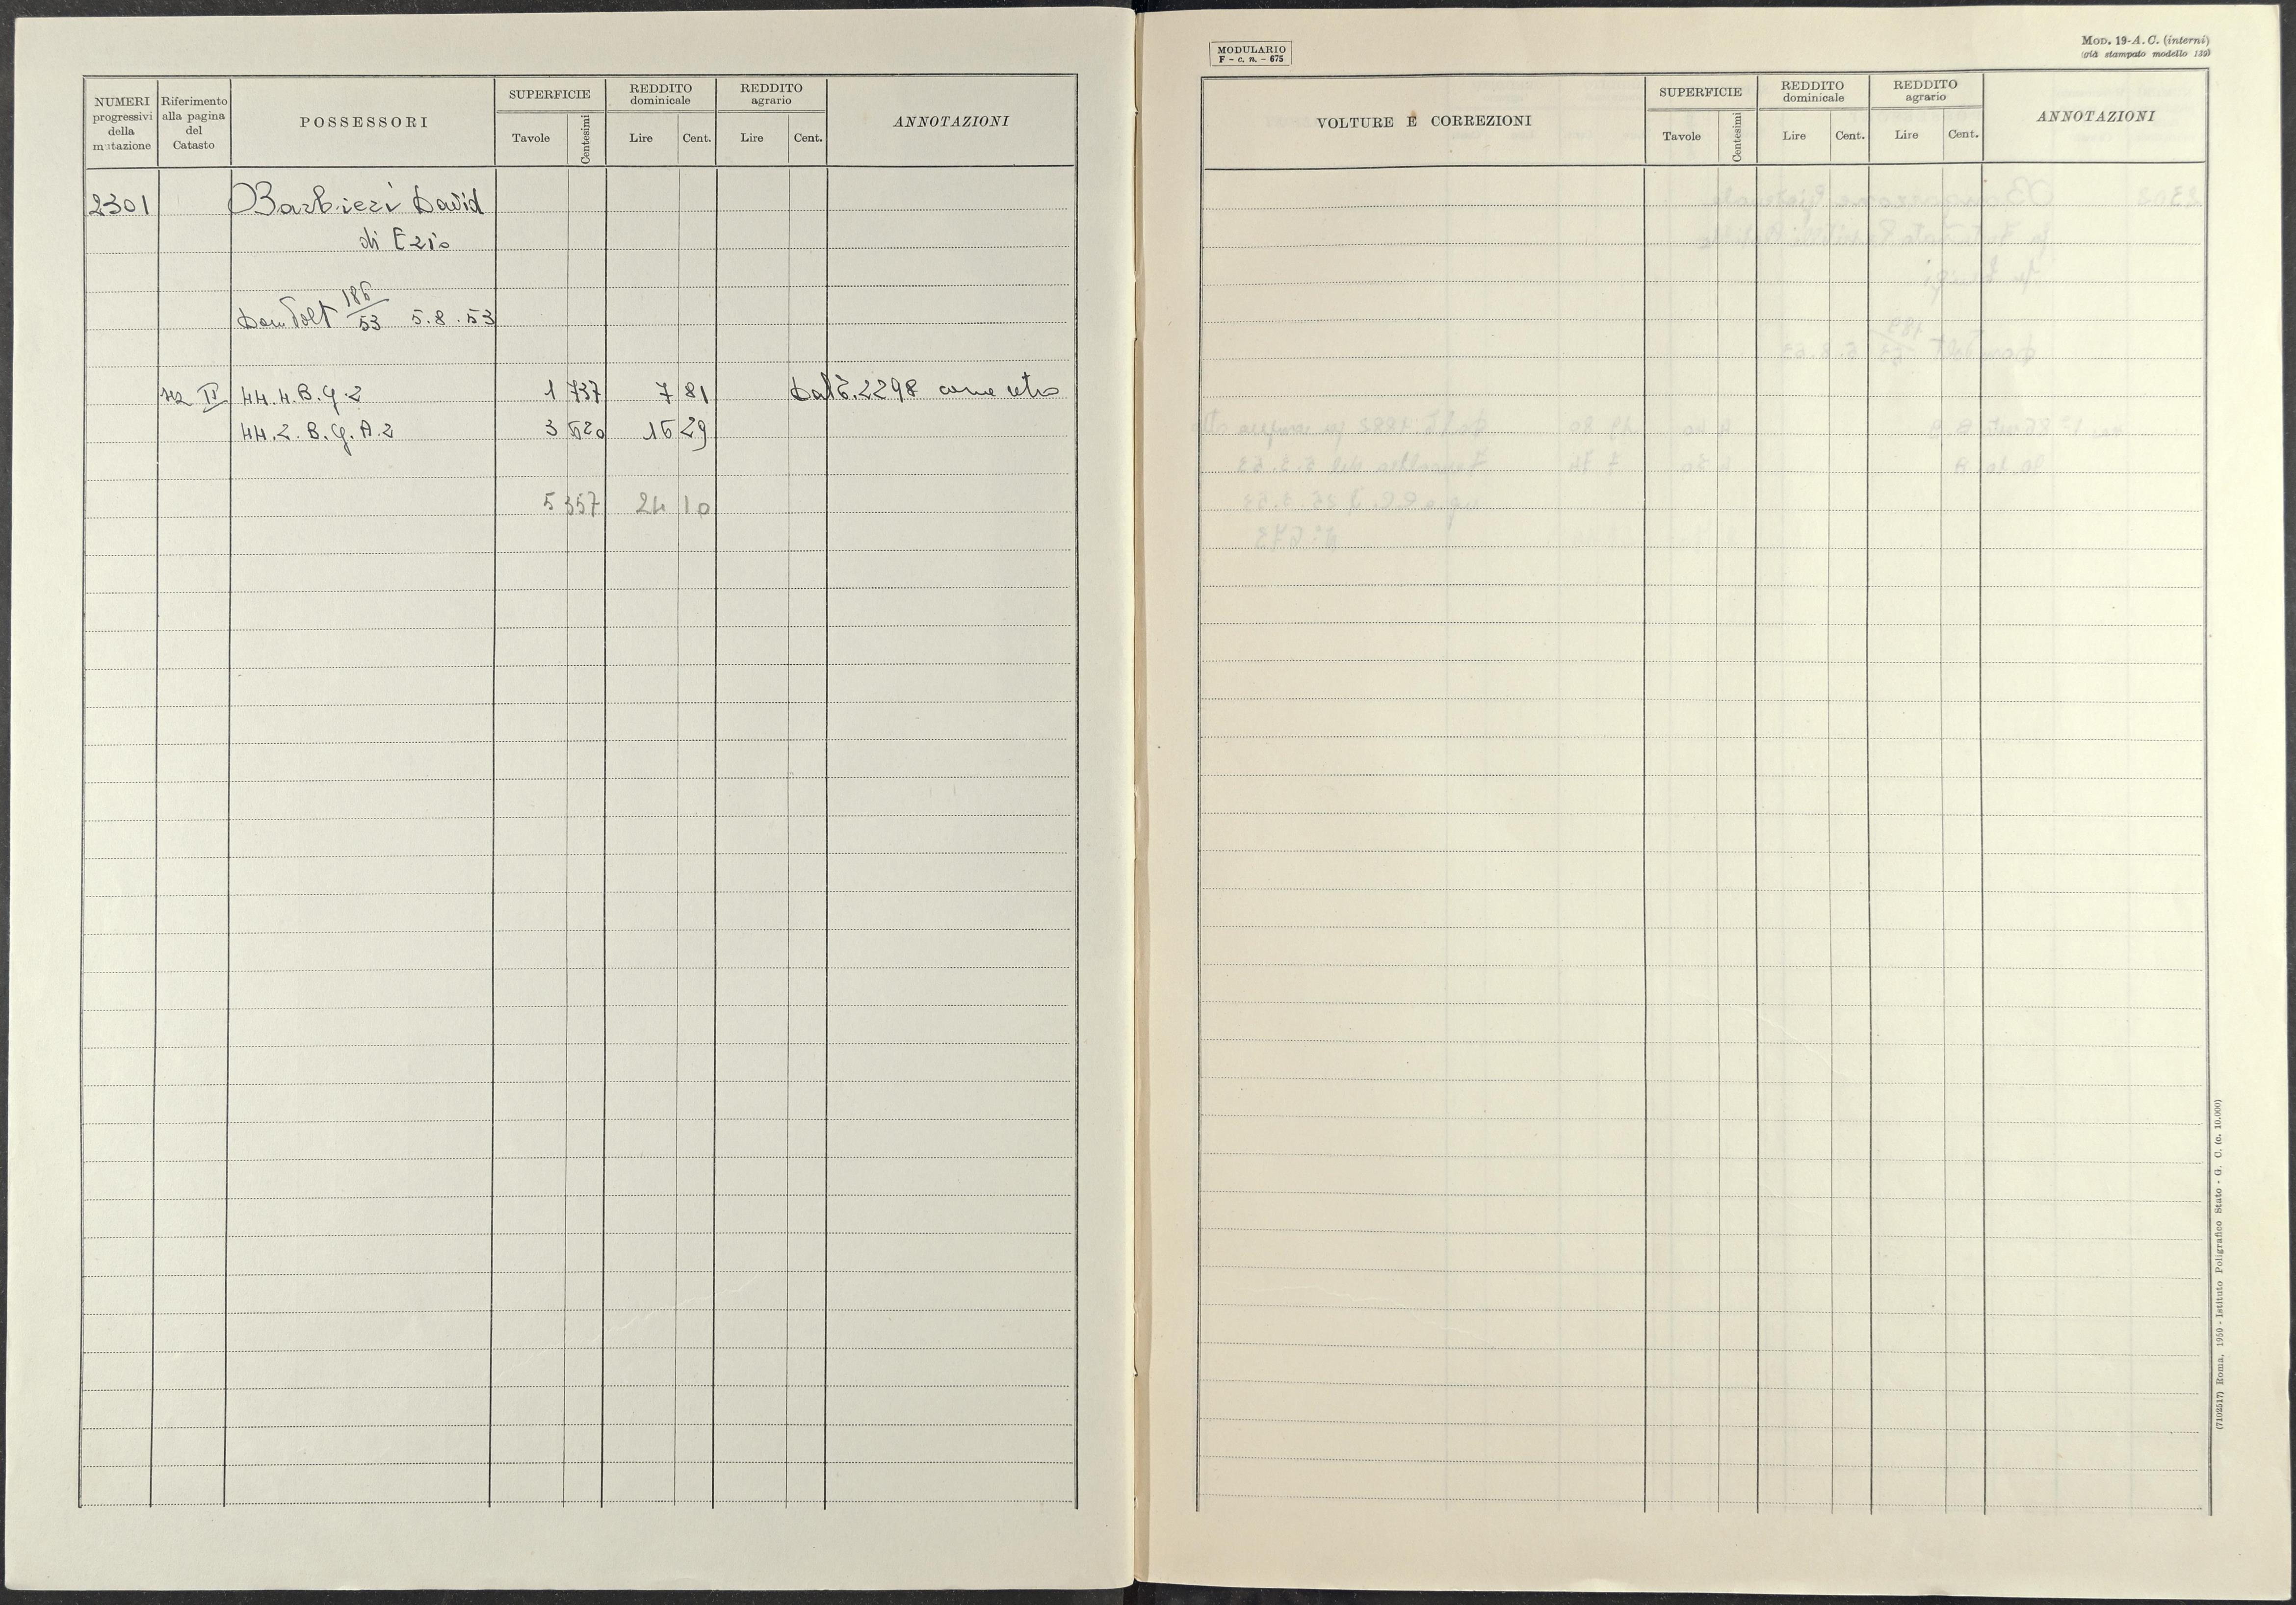 NUMERI progressivi della mutazione
Riferimento alla pagina del Catasto
POSSESSORI
SUPERFICIE
Tavole
Centesimi
REDDITO dominicale
Lire
Cent.
REDDITO agrario
Lire
Cent.
ANNOTAZIONI
2301 Barbieri David
di Ezio
Dom Volt 186/53 5.8.53
42 II 44.4.B.G.2 1 737 7 81 Dal 2298 come retro
44.2.B.G.A.2 3 620 16 29
5 357 24 10
MODULARIO
F - c. n. - 675
MOD. 19-A. C. (interni)
(già stampato modello 139)
VOLTURE E CORREZIONI
SUPERFICIE
Tavole
Centesimi
REDDITO dominicale
Lire
Cent.
REDDITO agrario
Lire
Cent.
ANNOTAZIONI
(7102517) Roma, 1950 - Istituto Poligrafico Stato - G. C. (c. 10.000)